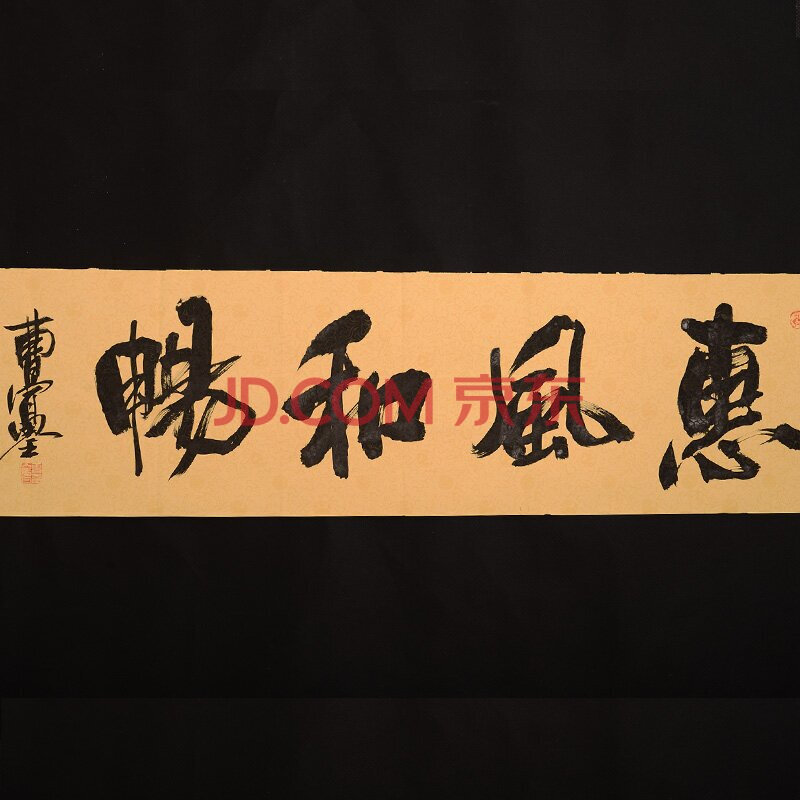 惠風和暢
曹
JD.COM 京东